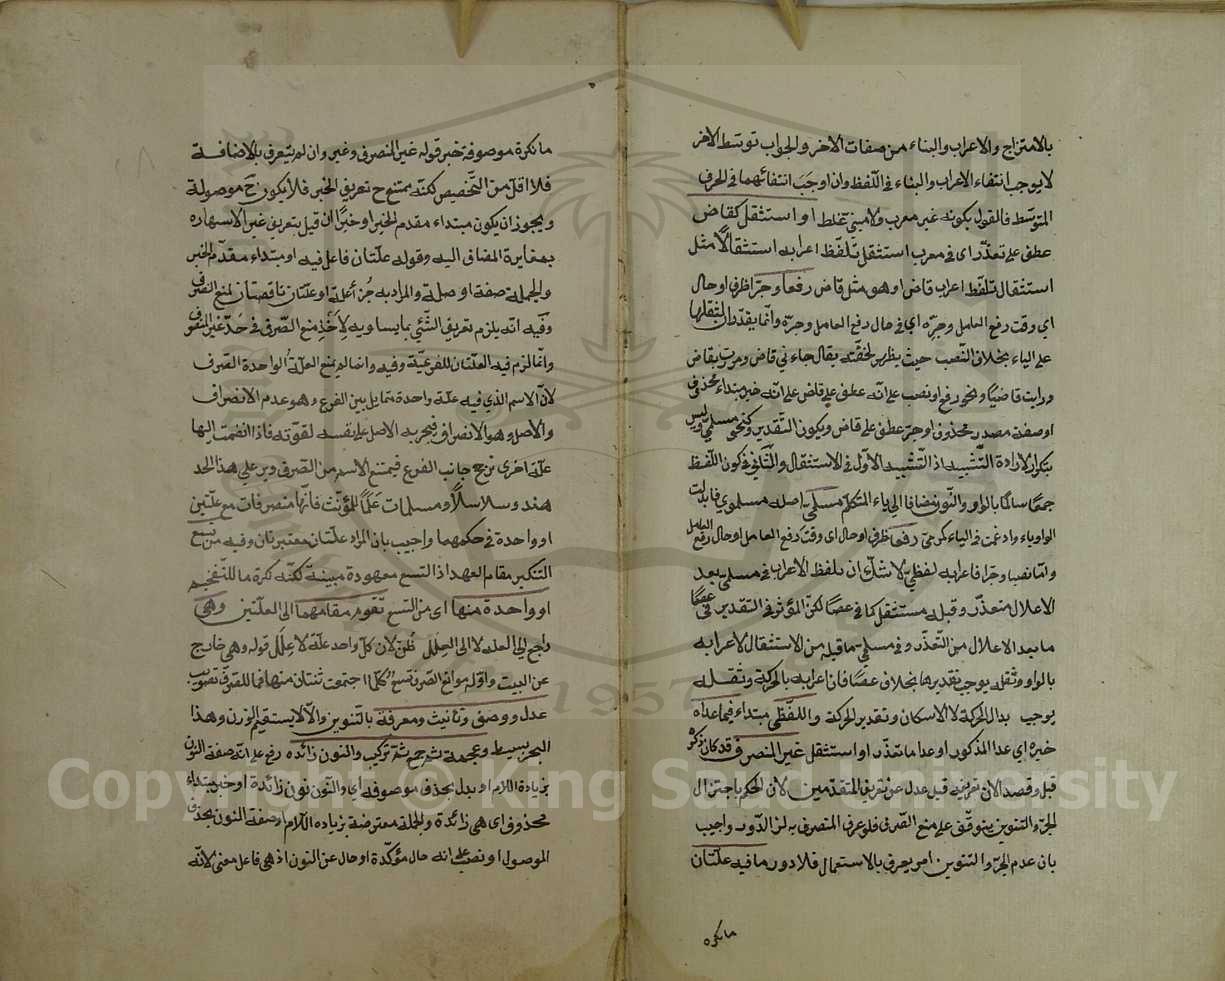 بالامتزاج والاعراب والبناء من صفات الاخر والجواب توسط الاخر
لا يوجب انتفاء الاعراب والبناء في اللفظ وان اوجب انتفائهما في الحرف
المتوسط فالقول بكونه غير معرب ولا مبني غلط او استثقل كقاض
عطف على تعذر اى في معرب استثقل تلفظ اعرابه استثقالا مثل
استثقال تلفظ اعراب قاض او هو مثل قاض رفعا وجرا ظرف او حال
اى وقت رفع العامل وجره اي في حال رفع العامل وجره وانما يقدران لثقلهما
على الياء بخلاف النصب حيث يظهر لخفته يقال جاءني قاض ومررت بقاض
ورايت قاضيا ونحو رفع او نصب على انه عطف على قاض على انه خبر مبتداء محذوف
او صفة مصدر محذوف او جر عطف على قاض ويكون التقدير وكنحو مسلمي وليس
بتكرار لارادة التشبيه اذ التشبيه الاول في الاستثقال والثاني في كون اللفظ
جمعا سالما بالواو والنون مضافا الى ياء المتكلم مسلمي اصله مسلموي فابدلت
الواو ياء وادغمت في الياء كمرمي رفعا ظرف او حال اى وقت رفع العامل او حال رفع العامل
واما نصبا وجرا فاعرابه لفظي لا شك ان تلفظ الاعراب في مسلمي بعد
الاعلال متعذر وقبله مستثقل كما في عصا لكن المؤثر في التقدير في عصا
ما بعد الاعلال من التعذر وفي مسلمي ما قبله من الاستثقال لاعرابه
بالواو وثقله يوجب تقديرها بخلاف عصا فان اعرابه بالحركة وثقله
يوجب بدال الحركة لا الاسكان وتقدير الحركة واللفظي مبتداء فيما عداه
خبره اي عدا المذكور او عدا ما تعذر او استثقل غير المنصرف قد كان ذكر
قبل وقصد الان تعريفه قبل عدل عن تعريف المتقدمين لان الحكم باختزال
الجر والتنوين يتوقف على منع الصرف فلو عرف المنصرف به لزم الدور واجيب
بان عدم الجر والتنوين امر يعرف بالاستعمال فلا دور ما فيه علتان
ما نكره
ما نكرة موصوفة خبر قوله غير المنصرف وغير وان لم يتعرف بالاضافة
فلا اقل من التخصيص لكنه يمتنع ح تعريف الخبر فلا يكون ح موصولة
ويجوز ان يكون مبتداء مقدم الخبر او خبرا ان قيل بتعريف غير لاشتهاره
بمغايرة المضاف اليه وقوله علتان فاعل فيه او مبتداء مقدم الخبر
والجملة صفة او صلة والمراد به جزء اعلة او علتان ناقصتان لمنع الصرف
وفيه انه يلزم تعريف الشئ بما يساويه لاخذ منع الصرف في حد غير المنصرف
وانما لزم فيه العلتان للفرعية وفيه وانما لم يمنع العلة الواحدة الصرف
لان الاسم الذي فيه علة واحدة تمايل بين الفرع وهو عدم الانصراف
والاصل وهو الانصراف فيجر به الاصل على نفسه لقوته فاذا انضمت اليها
علة اخرى ترجح جانب الفرع فيمنع الاسم من الصرف ويرد على هذا الحد
هند وسلاسلا ومسلمات علما للمؤنث فانها منصرفات مع علتين
او واحدة في حكمهما واجيب بان المراد علتان معتبرتان وفيه من تسع
التنكير مقام العهد اذ التسع معهودة مبينة لكنه نكرة ما للتفخيم
او واحدة منها اى من التسع تقوم مقامهما الى العلتين وهي
راجع الى العلة لا الى العلل ظن لان كل واحد علة لا علل قوله وهي خارج
عن البيت واوله موانع الصرف تسع كلما اجتمعت ثنتان منها فما للصرف تصويب
عدل ووصف وتأنيث ومعرفة بالتنوين والا لا يستقيم الوزن وهذا
البحر بسيط وعجمة ثم جمع ثم تركيب والنون زائدة رفع على انه صفة النون
بزيادة اللام او بدل بحذف موصوفه اي والنون نون زائدة او خبر مبتداء
محذوف اى هي زائدة والجملة معترضة بزيادة الكلام او صفة النون بحذف
الموصول او نصب على انه حال مؤكدة او حال عن النون اذ هي فاعل معنى لانه
Copyright © King Saud University
1957